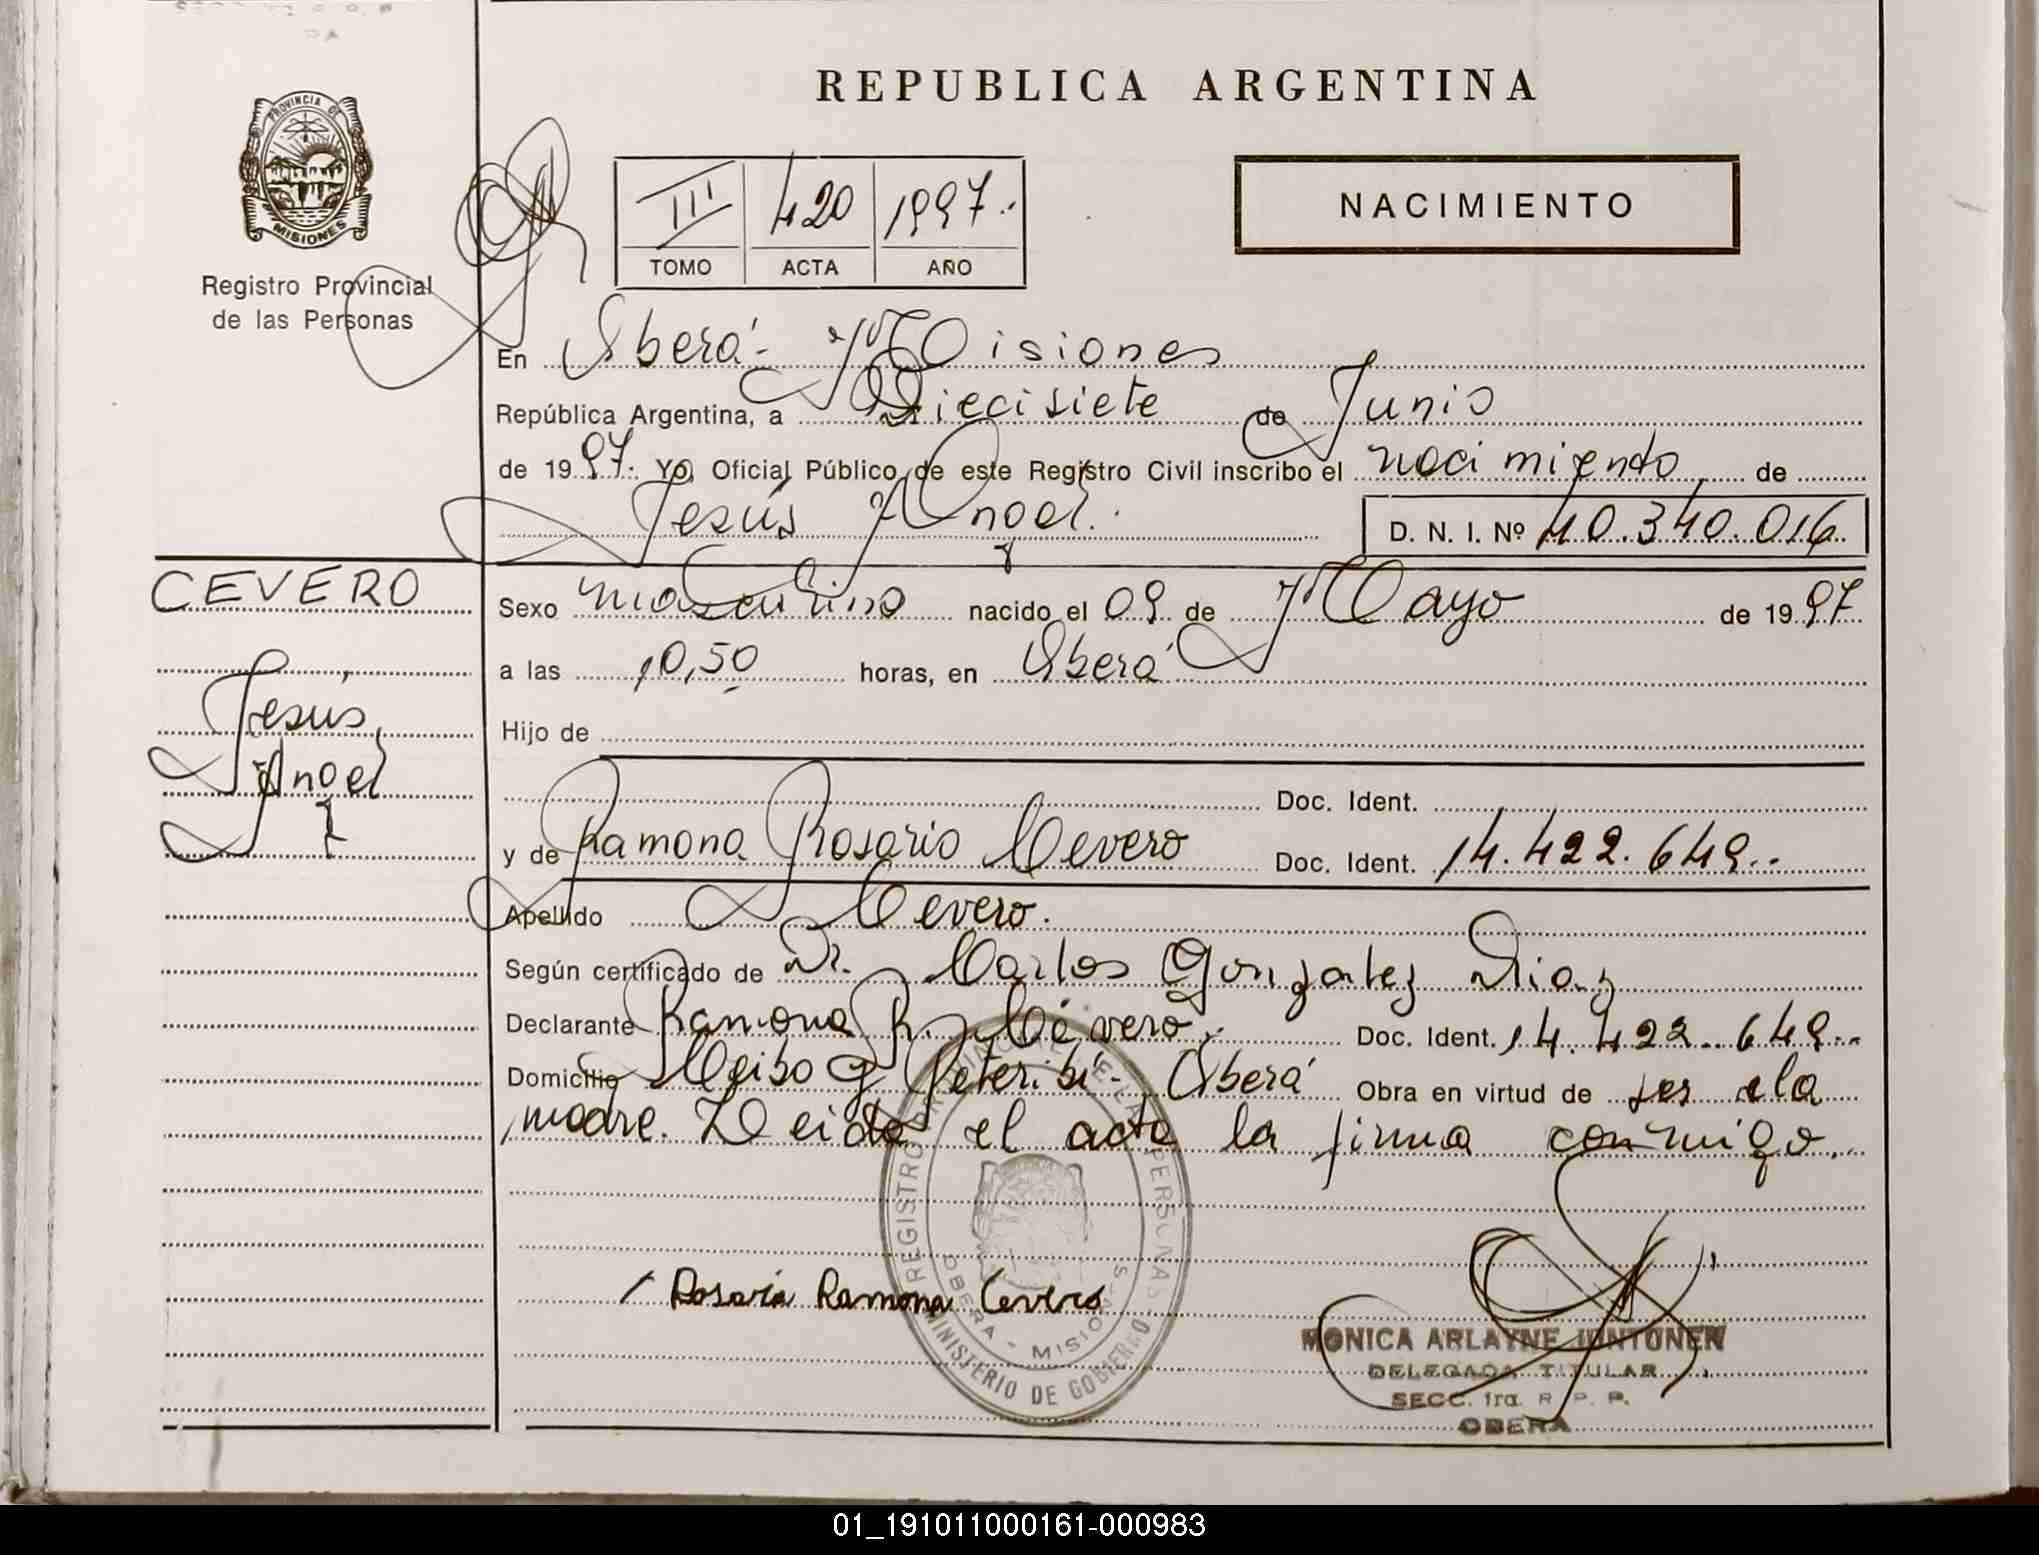 REPUBLICA ARGENTINA
PROVINCIA DE
MISIONES
Registro Provincial
de las Personas
III 420 1997.
TOMO ACTA AÑO
NACIMIENTO
En Oberá - Misiones
República Argentina, a Diecisiete de Junio
de 1997. Yo, Oficial Público de este Registro Civil inscribo el nacimiento de
Jesús Angel. D. N. I. Nº 40.340.016
CEVERO
Jesús
Angel
Sexo masculino nacido el 09 de Mayo de 1997
a las 10,50 horas, en Oberá
Hijo de
Doc. Ident.
y de Ramona Rosario Cevero Doc. Ident. 14.422.649..
Apellido Cevero.
Según certificado de Dr. Carlos Gonzalez Diaz
Declarante Ramona R. Cevero. Doc. Ident. 14.422.649..
Domicilio Ceibo y Peteribí - Oberá Obra en virtud de ser la
madre. Leida el acta la firma conmigo.
REGISTRO PROVINCIAL DE LAS PERSONAS
OBERA - MISIONES
MINISTERIO DE GOBIERNO
Rosaria Ramona Cevero
MONICA ARLAYNE JUNTUNEN
DELEGADA TITULAR
SECC. 1ra. R. P. P.
OBERA
01_191011000161-000983